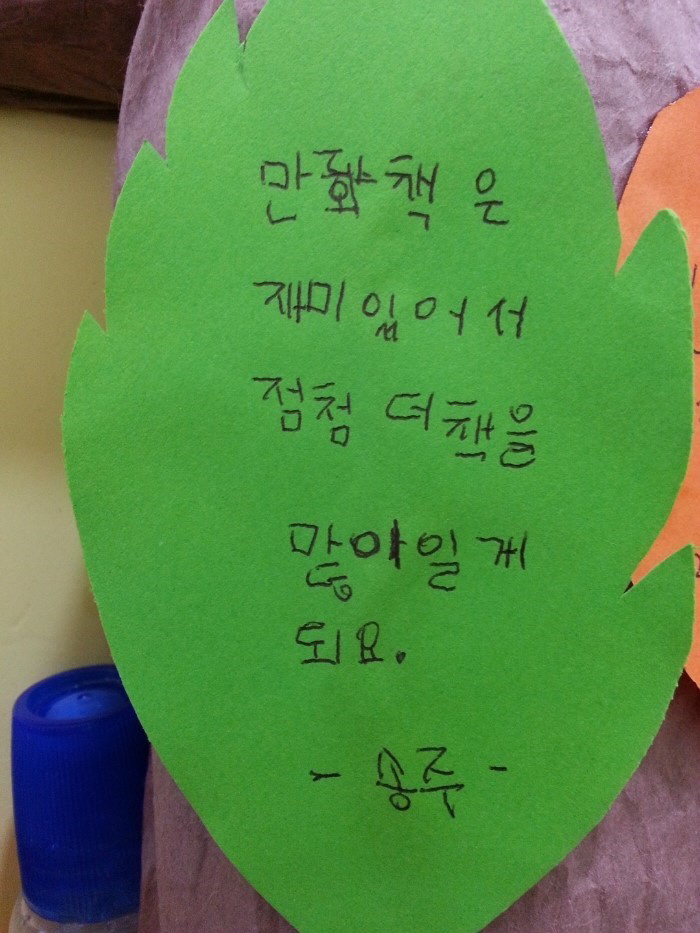 만화책 은
재미있어서
점첨 더 책을
많아일게
되요.
- 송주 -